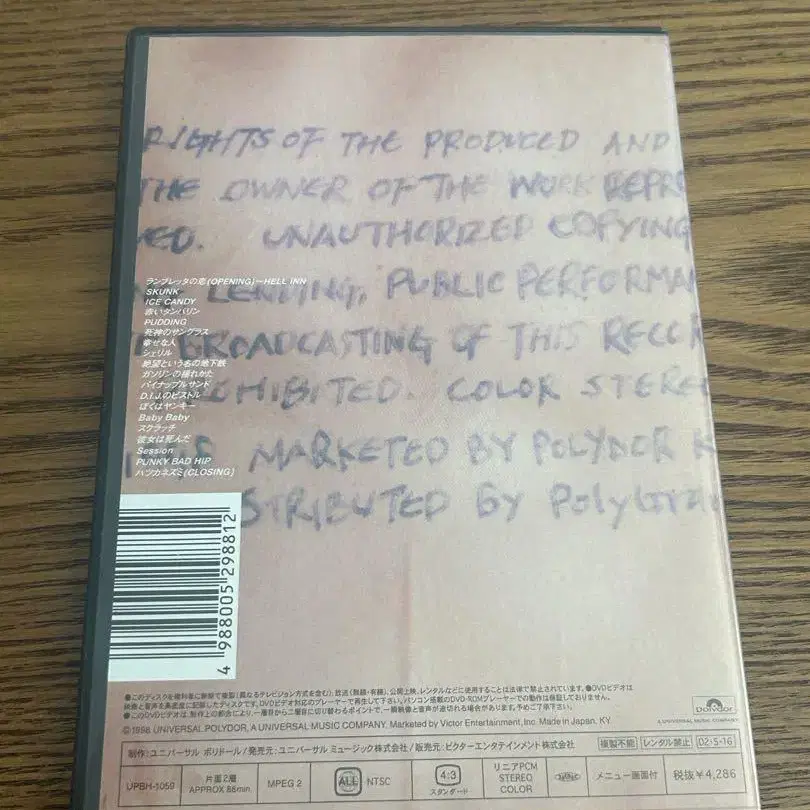 RIGHTS OF THE PRODUCED AND
THE OWNER OF THE WORK REPRO
ED. UNAUTHORIZED COPYING
LENDING, PUBLIC PERFORMA
BROADCASTING OF THIS RECOR
OHIBITED. COLOR STERE
MARKETED BY POLYDOR K
STRIBUTED BY POLYGRA
ランブレッタの恋(OPENING)〜HELL INN
SKUNK
ICE CANDY
赤いタンバリン
PUDDING
死神のサングラス
幸せな人
シェリル
絶望という名の地下鉄
ガソリンの揺れかた
パイナップルサンド
D.I.J.のピストル
ぼくはヤンキー
Baby Baby
スクラッチ
彼女は死んだ
Session
PUNKY BAD HIP
ハツカネズミ(CLOSING)
4 988005 298812
●このディスクを権利者に無断で複製(異なるテレビジョン方式を含む)、放送(無線・有線)、公開上映、レンタルなどに使用することは法律で禁止されています。●DVDビデオは
映像と音声を高密度に記録したディスクです。DVDビデオ対応のプレーヤーで再生して下さい。パソコン搭載のDVD-ROMプレーヤーでの動作は保証しておりません。
●このDVDビデオは、制作上の都合により、一層目から二層目に切り替わるポイントで、一瞬映像と音声が途切れる場合があります。予めご了承下さい。
polydor
A UNIVERSAL MUSIC COMPANY
©1998 UNIVERSAL POLYDOR, A UNIVERSAL MUSIC COMPANY. Marketed by Victor Entertainment, Inc. Made in Japan. KY.
制作:ユニバーサル ポリドール/発売元:ユニバーサル ミュージック株式会社/販売元:ビクターエンタテインメント株式会社 複製不能 レンタル禁止 02・5・16
UPBH-1059 片面2層 APPROX 86min MPEG 2 ALL NTSC 4:3 スタンダード リニアPCM STEREO COLOR メニュー画面付 税抜¥4,286